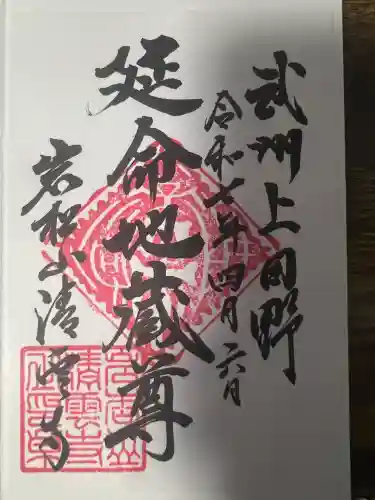 武州上日野
令和七年四月六日
延命地蔵尊
岩松山清雲寺